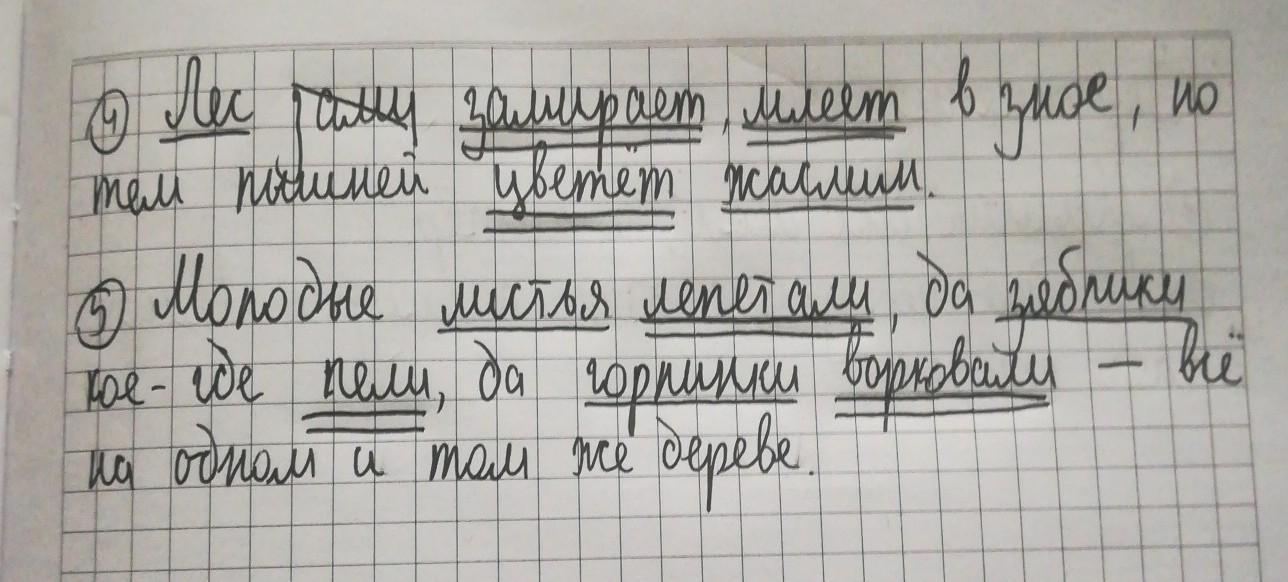 ④ Лес замирает, млеет в зное, но
тем пышней цветёт жасмин.
⑤ Молодые листья лепетали, да зяблики
кое-где пели, да горлинки ворковали – всё
на одном и том же дереве.